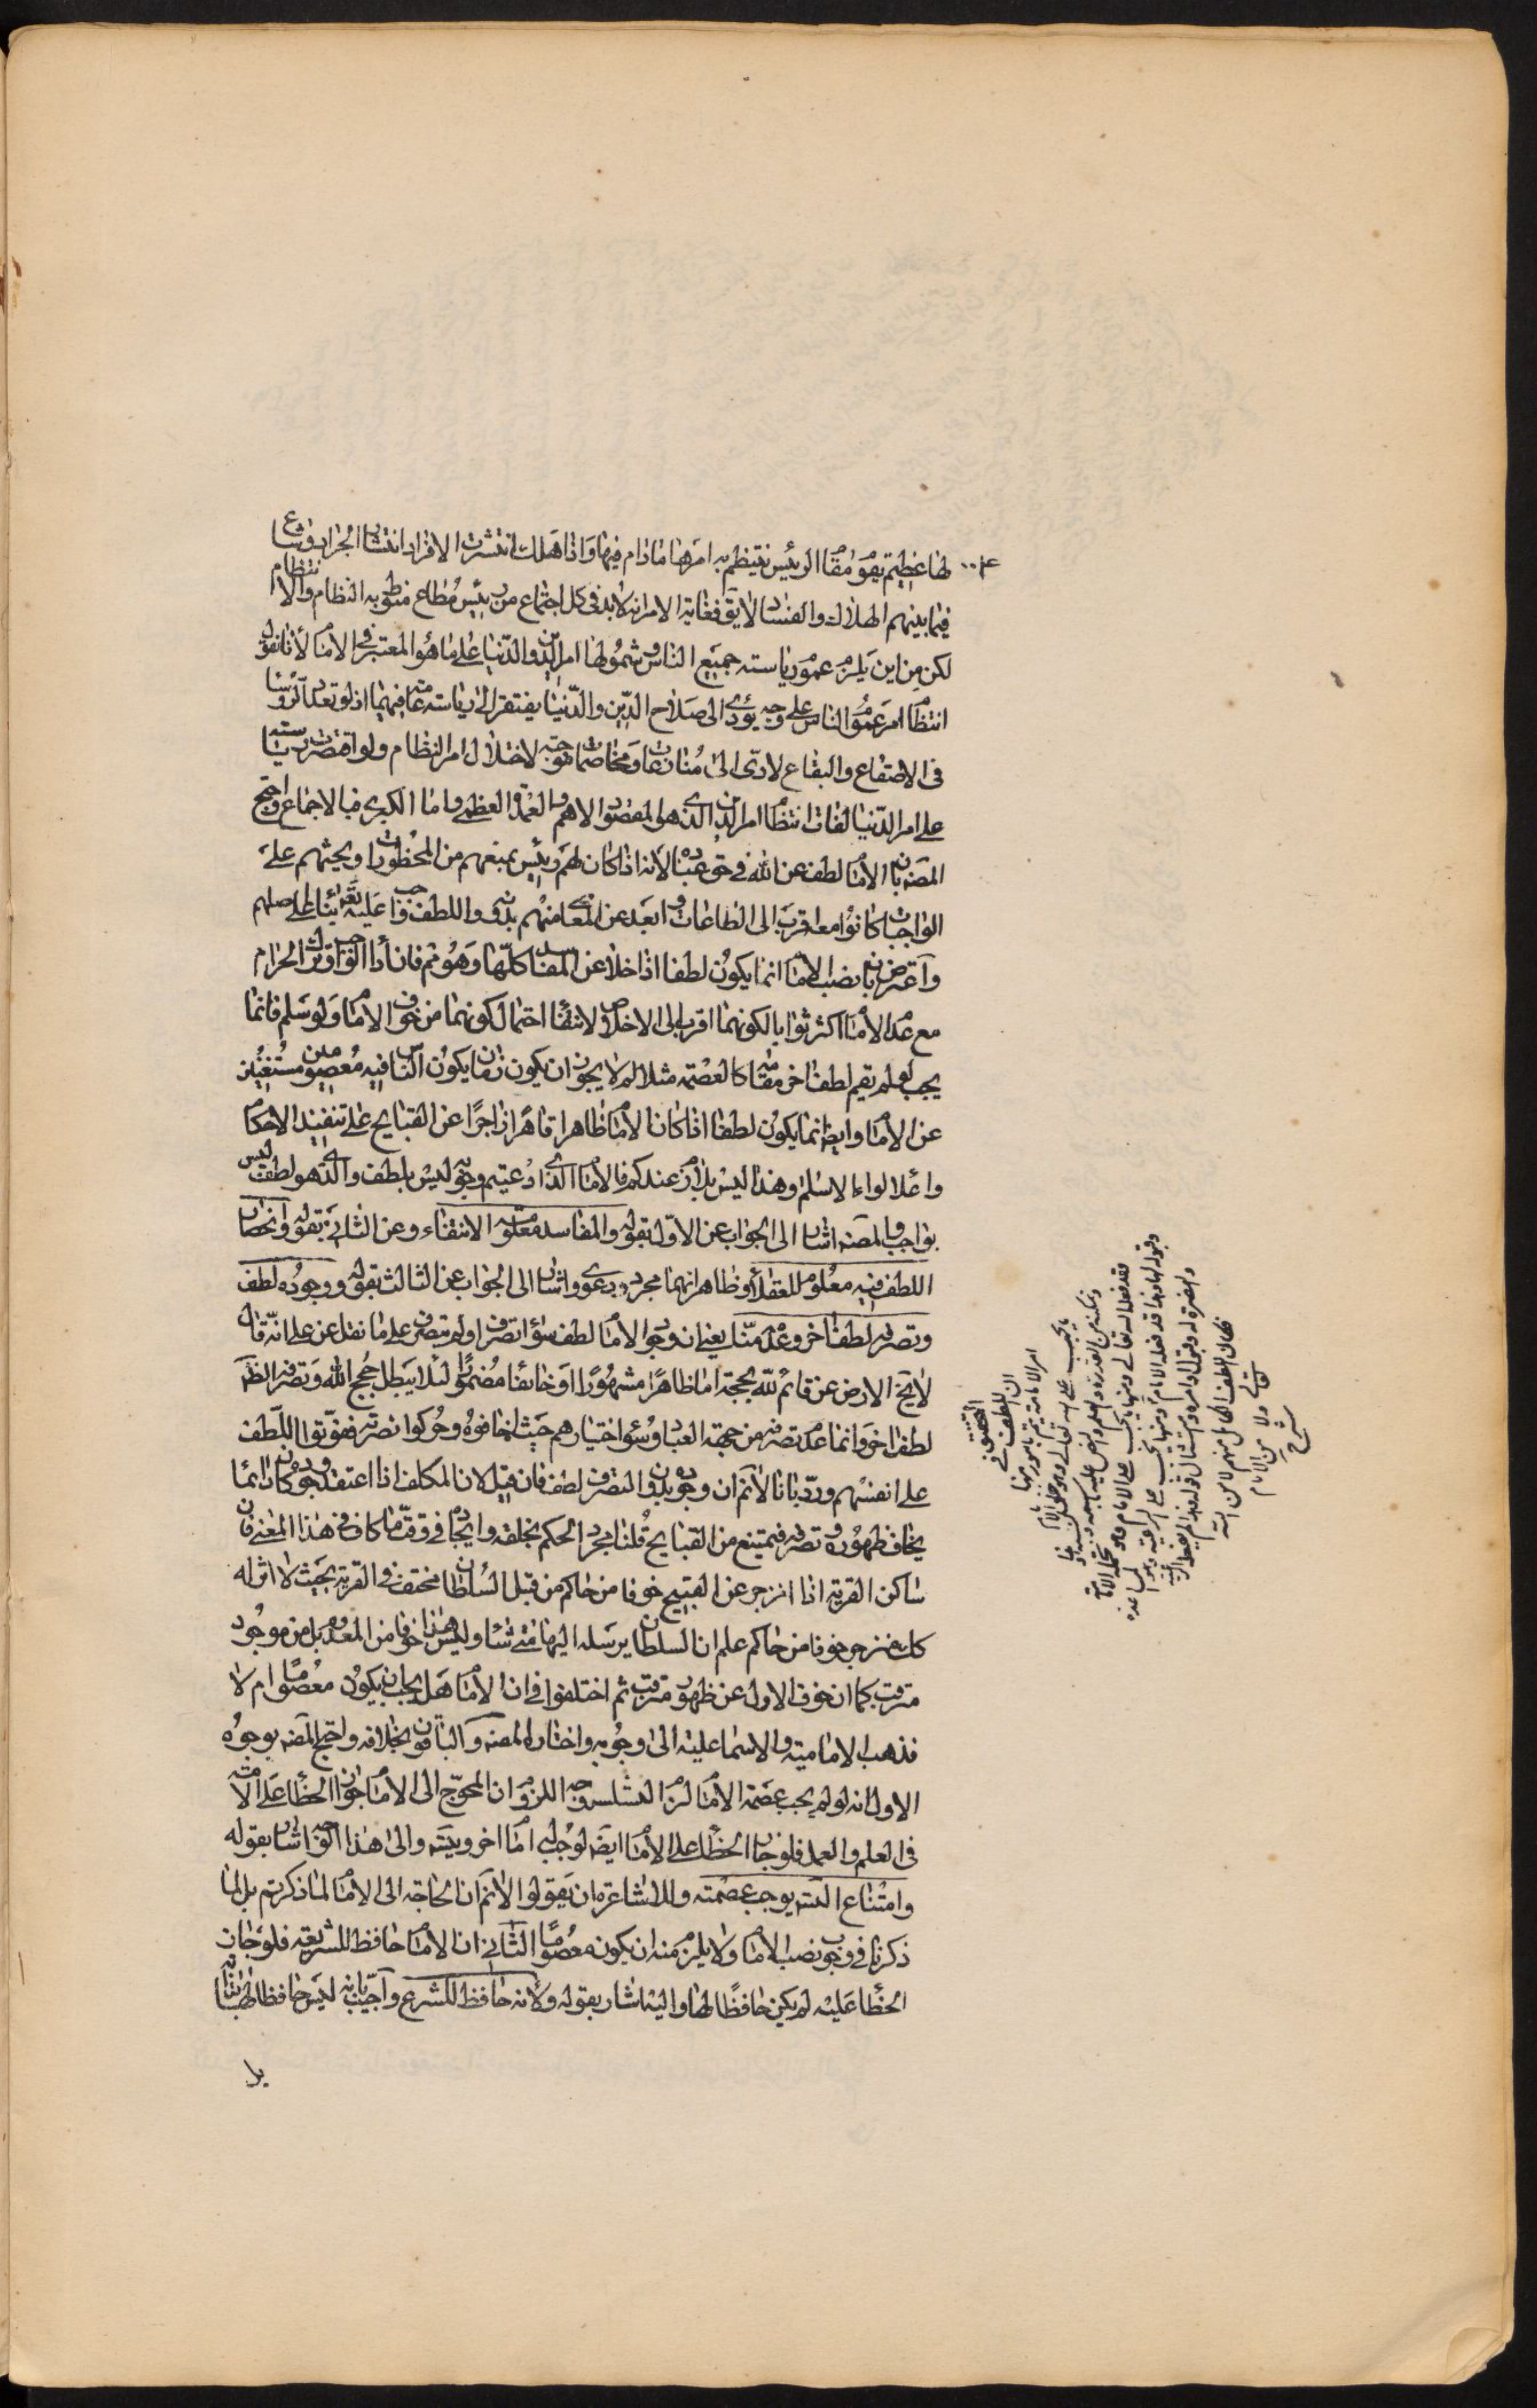 لها عظيم يقوم مقام الرئيس ينتظم به امرها ما دام فيها واذا هلك انتشرت الافراد انتشار الجراد وشاع
فيما بينهم الهلاك والفساد لا يق فغاية الامر انه لا بد في كل اجتماع من رئيس مطاع منوط به النظام والانتظام
لكن من اين يلزم عموم رياسته جميع الناس وشمولها امر الدين والدنيا على ما هو المعتبر في الامام لأنا نقول
انتظام امر عموم الناس على وجه يؤدي الى صلاح الدين والدنيا يفتقر الى رياسة عامة فيهما اذ لو تعدد الرؤسا
في الاصقاع والبقاع لادى الى منازعات ومخاصمات موجبة لاختلال امر النظام ولو اقتصرت رياسته
على امر الدنيا لفات انتظام امر الدين الذي هو المقصود الاهم والعمدة العظمى واما الكبرى فبالاجماع واحتج
المصنف بان الامام لطف من الله في حق عباده لانه اذا كان لهم رئيس يمنعهم من المحظورات ويحثهم على
الواجبات كانوا معه اقرب الى الطاعات وابعد عن المعاصي منهم بدونه واللطف واجب عليه تعالى بناء على اصلهم
واعترض بان نصب الامام انما يكون لطفا اذا خلا عن المفاسد كلها وهو مم فان اداء الواجب وترك الحرام
مع عدم الامام اكثر ثوابا لكونهما اقرب الى الاخلاص لانتفاء احتمال كونهما من خوف الامام ولو سلم فانما
يجب لو لم يقم لطف اخر مقامه كالعصمة مثلا لم لا يجوز ان يكون زمان يكون الناس فيه معصومين مستغنين
عن الامام وايضا انما يكون لطفا اذا كان الامام ظاهرا قاهرا زاجرا عن القبايح على تنفيذ الاحكام
واعلا لواء الاسلام وهذا ليس بلازم عندكم فالامام الذي ادعيتم وجوبه ليس بلطف والذي هو لطف ليس
بواجب والمصنف اشار الى الجواب عن الاول بقوله والمفاسد معلومة الانتفاء وعن الثاني بقوله وانحصار
اللطف فيه معلوم للعقلاء وظاهر انهما مجرد دعوى واشار الى الجواب عن الثالث بقوله ووجوده لطف
وتصرفه لطف اخر وعدمه منا يعني ان وجود الامام لطف سواء تصرف او لم يتصرف على ما نقل عن علي انه قال
لا يخلو الارض عن قائم لله بحجة اما ظاهرا مشهورا او خائفا مغمورا لئلا يبطل حجج الله وتصرفه الظ
لطف اخر وانما عدم تصرفه من جهة العباد وسوء اختيارهم حيث اخافوه وتركوا نصرته ففوتوا اللطف
على انفسهم ورد بانا لانم ان وجوده بدون التصرف لطف فان قيل لان المكلف اذا اعتقد وجوده كان دائما
يخاف ظهوره وتصرفه فيمتنع من القبايح قلنا مجرد الحكم بخلقه وايجاده في وقت ما كاف في هذا المعنى فان
ساكن القرية اذا انزجر عن القبيح خوفا من حاكم من قبل السلطان مختف في القرية بحيث لا اثر له
كك ينزجر خوفا من حاكم علم ان السلطان يرسله اليها متى شاء وليس هذا خوفا من المعدوم بل من موجود
مترقب كما ان خوف الاول عن ظهور مترقب ثم اختلفوا في ان الامام هل يجب ان يكون معصوما ام لا
فذهب الامامية والاسماعيلية الى وجوبه واختاره المصنف والباقون بخلافه واحتج المصنف بوجوه
الاول انه لو لم يجب عصمة الامام لزم التسلسل وجه اللزوم ان المحوج الى الامام جواز الخطأ على الامة
في العلم والعمل فلو جاز الخطأ على الامام ايضا لوجب له امام اخر ويتسلسل والى هذا الوجه اشار بقوله
وامتناع التسلسل يوجب عصمته وللاشاعرة ان يقولوا لانم ان الحاجة الى الامام لما ذكرتم بل لما
ذكرنا في وجوب نصب الامام ولا يلزم منه ان يكون معصوما الثاني ان الامام حافظ للشريعة فلو جاز
الخطأ عليه لم يكن حافظا لها واليه اشار بقوله ولانه حافظ للشرع واجيب بانه ليس حافظا لها بذاته
بل
التحقيق في
ان اللطف في
امر الامامة يتم بامور منها ما
يجب على الله تعالى وهو خلق الامام
وتمكينه من القدرة والعلم والنص عليه باسمه ونسبه وهذا
قد فعله الله تعالى ومنها ما يجب على الامام وهو تحمله الامامة
وقبوله لها وهذا قد فعله الامام ومنها ما يجب على الرعية وهو مساعدته
والنصرة له وقبول اوامره وامتثال قوله وهذا لم يفعله الرعية
فكان اللطف الكامل منهم لا من الله
تعالى ولا من الامام
شرح